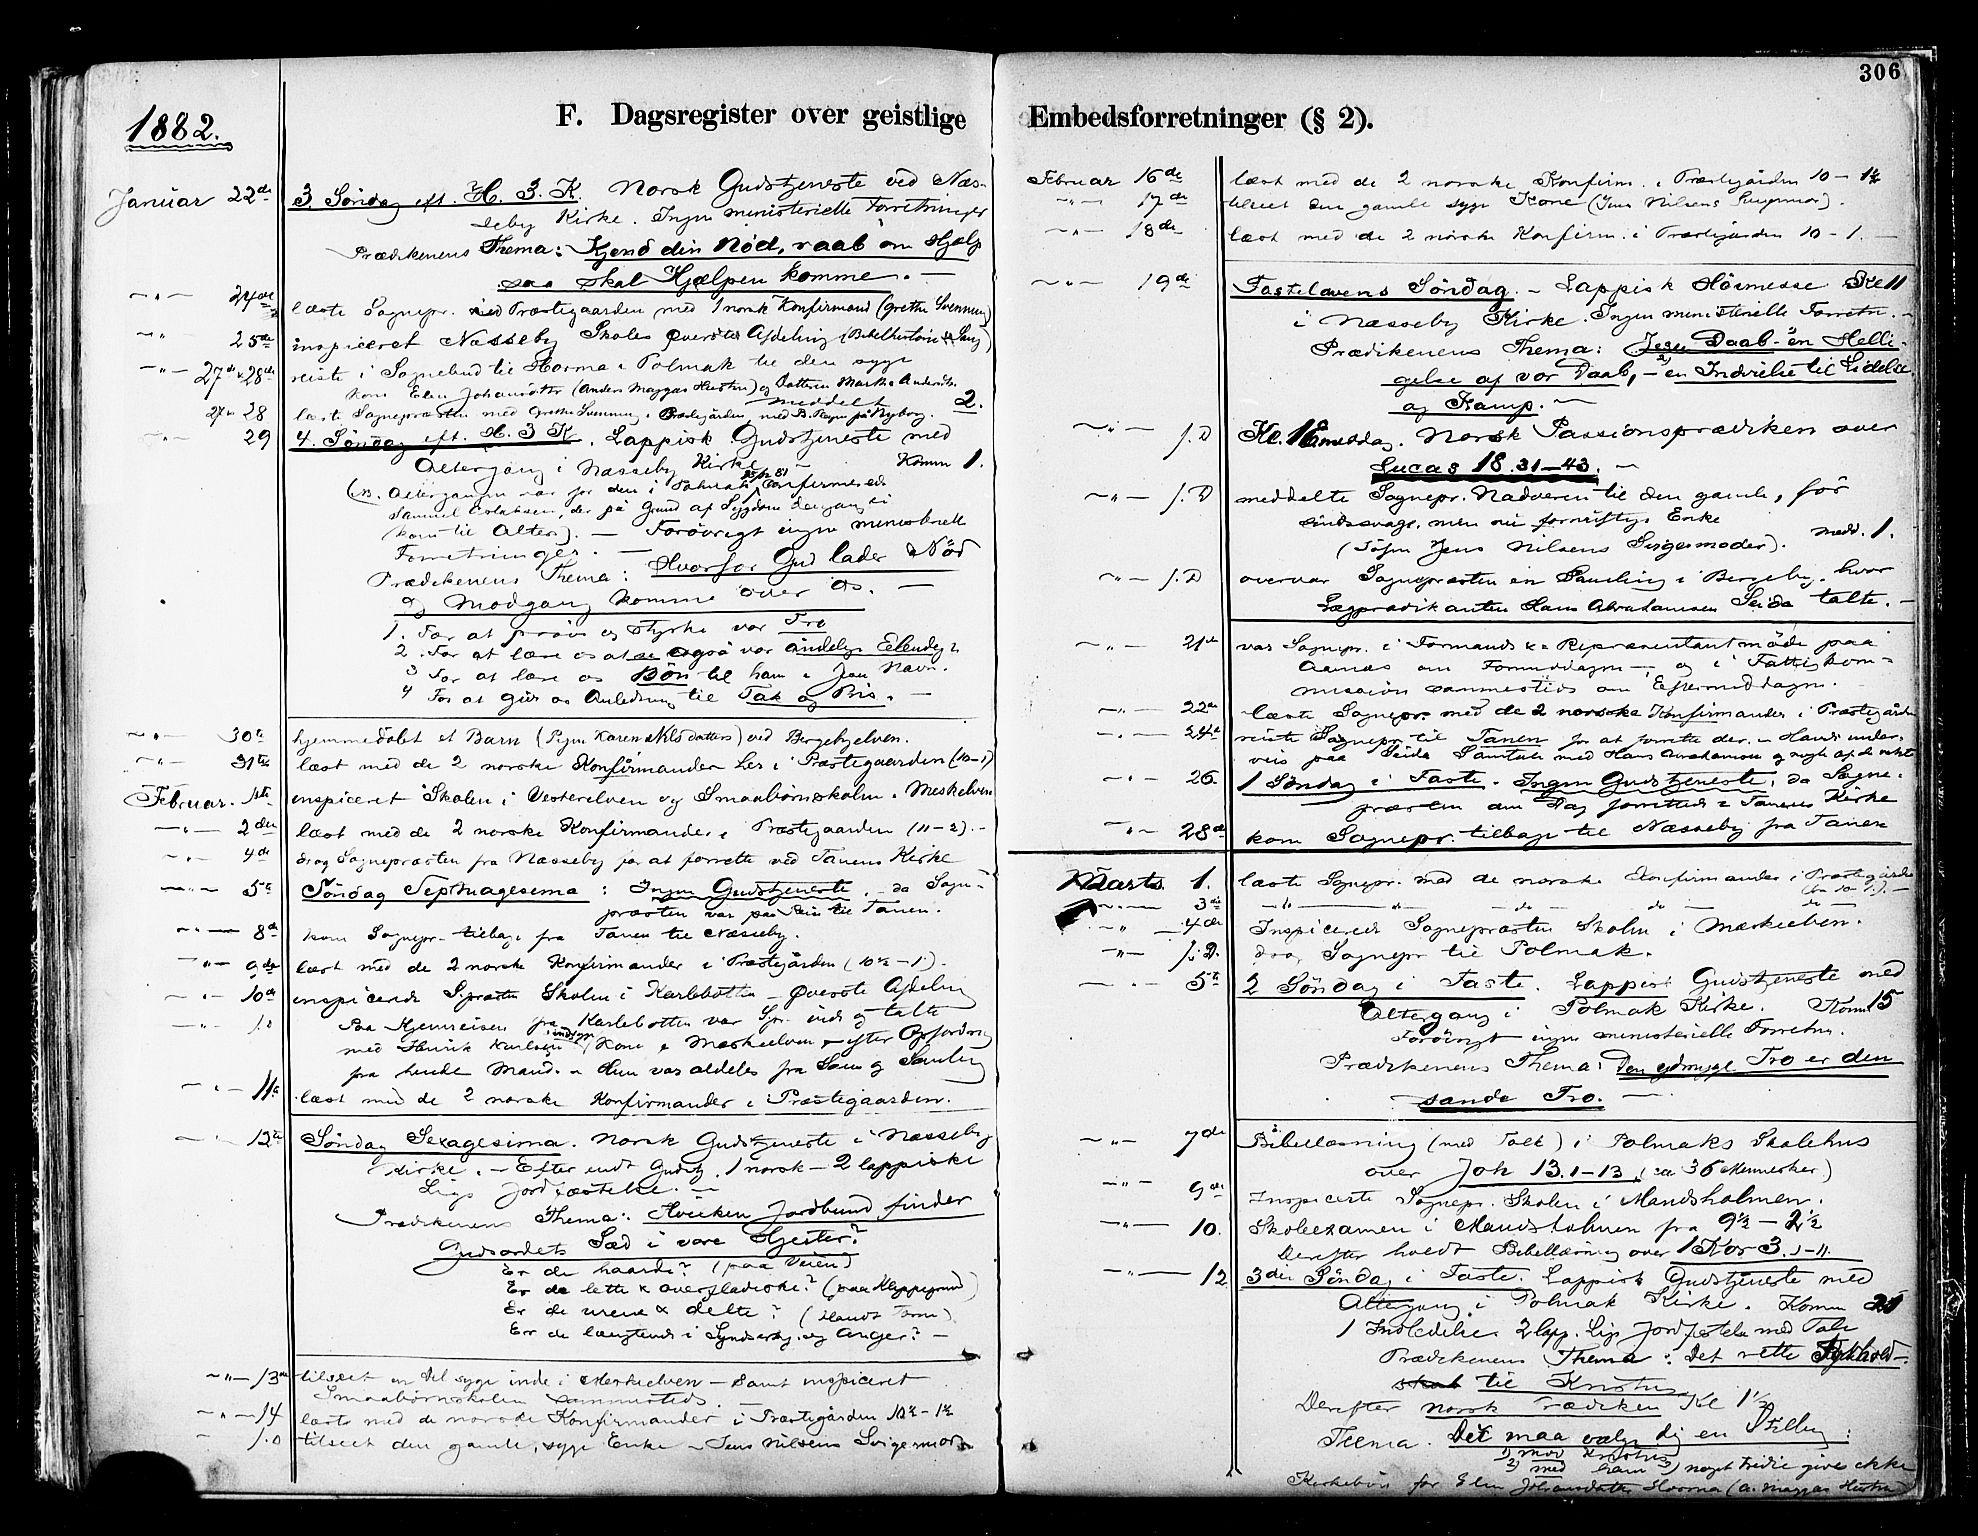 306
F. Dagsregister over geistlige Embedsforretninger (§ 2).
1882.
Januar 22de 3. Søndag eft. H. 3 K. Norsk Gudstjeneste ved Næs-
seby Kirke. Ingen ministerielle Forretninger
Prædikenens Thema: Kjend din Nød, raab om Hjælp
saa skal Hjælpen komme. —
—"— 24de læste Sognepr. ved Præstegaarden med 1 norsk Konfirmand (Grethe Svenning)
—"— 25de inspiceret Næsseby Skoles øverste Afdeling (Bibelhistorie & Sang)
—"— 27de & 28de reiste i Sognebud til Horma i Polmak til den syge
Kone Elen Johansdatter (Anders Maggas Hustru) og Marthe Andersdtr.
meddelt 2.
27de 28 læste Sognepræsten med Grethe Svenning i Prædstegården
—"— 29 4. Søndag eft. H. 3 K. Lappisk Gudstjeneste med
Altergang i Næsseby Kirke — Komm 1.
(NB. Altergangen var for den i Polmak confirmerede
Samuel Olsen, der på Grund af Sygdom dengang ei
kom til Alters). — Forøvrigt ingen ministerielle
Forretninger. —
Prædikenens Thema: Hvorfor Gud lader Nød
og Modgang komme over os. —
1. For at prøve og styrke vor Tro
2. For at lære os at se også vor åndelige Elendigh.
3 For at lære os Bön til ham i Jesu Navn.
4 For at give os Anledning til Tak og Pris. —
—"— 30te hjemmedøbt et Barn (Karen Nilsdatter) ved Bergebyelven.
—"— 31te læst med de 2 norske Konfirmander her i Præstegaarden (10-1)
Februar 1ste inspiceret Skolen i Vesterelven og Smaabørnskolen i Meskelven
—"— 2den læst med de 2 norske Konfirmander i Præstegaarden (11-2). —
—"— 4de drog Sognepræsten fra Næsseby for at forrette ved Tanens Kirke
—"— 5te Søndag Septuagesima: Ingen Gudstjeneste, da Sogne-
præsten var paa Reise til Tanen.
—"— 8de kom Sognepr. tilbage fra Tanen til Næsseby.
—"— 9de læst med de 2 norske Konfirmander i Præstegården (10½ - 1).
—"— 10de inspicerede S.præsten Skolen i Karlebotten — Øverste Afdeling
—"— s.D Paa Hjemreisen fra Karlebotten var Spr. inde og talte
med Henrik Karlsens sindssyge Kone i Meskelven — efter Opfordring
fra hendes Mand. — Hun var aldeles fra Sans og Samling
—"— 11te læst med de 2 norske Konfirmander i Præstegaarden.
—"— 12te Søndag Sexagesima. Norsk Gudstjeneste i Næsseby
Kirke. — Efter endt Gudstj. 1 norsk — 2 lappiske
Ligs Jordfæstelse. —
Prædikenens Thema: Hvilken Jordbund finder
Gudsordets Sæd i vore Hjerter?
Er de haarde? (paa Veien)
Er de lette & overfladiske? (paa Klippegrund)
Er de urene & delte? (blandt Torne)
Er de længtende i Syndserkj. og Anger? —
—"— 13de tilseet en Del syge inde i Meskelven — samt inspiceret
Smaabörnskolen sammesteds.
—"— 14 læste med de norske Konfirmander i Præstegården 10½ - 1½
— s.D tilseet den gamle, syge Enke — Jens Nilsens Svigermor
Februar 16de læst med de 2 norske Konfirm. i Præstegården 10 - 1½
—"— 17de tilseet den gamle syge Kone (Jens Nilsens Svigermor).
—"— 18de læst med de 2 norske Konfirm. i Præstegården 10 - 1. —
—"— 19de Fastelavens Søndag. — Lappisk Høimesse Kl 11
i Næsseby Kirke. Ingen ministerielle Forretn. —
Prædikenens Thema: Jesu Daab — en Helli-
gelse af vor Daab, — en Indvielse til Lidelse
og Kamp. —
—"— s.D Kl. Norsk Passionsprædiken over
Lucas 18. 31-43. —
—"— s.D meddelte Sognepr. Nadveren til den gamle, før
sindssvage, men nu fornuftige Enke
(Jens Nilsens Svigermoder). medd. 1.
—"— s.D overvar Sognepræsten en Samling i Bergeby, hvor
Lægprædikanten Hans Abrahamsen Seida talte. —
—"— 21de var Sognepr. i Formands & Repræsentantmöde paa
om Formiddagen — og i Fattigkom-
mission sammesteds om Eftermiddagen.
—"— 22de læste Sognepr. med de 2 norske Konfirmander i Præstegården
—"— 24de reiste Sognepr. til Tanen for at forrette der. — Havde under-
veis paa Seida Samtale med Hans Abrahamsen og nogle af de vakte
—"— 26. 1 Søndag i Faste. Ingen Gudstjeneste, da Sogne-
præsten den Dag forrettede i Tanens Kirke
—"— 28de kom Sognepr. tilbage til Næsseby fra Tanen
Marts 1. læste Sognepr. med de norske Konfirmander i Præstegården
(fra 10-1). —
—"— 3de —"— —"— do — do — do —
—"— 4de Inspicerede Sognepræsten Skolen i Mæskeelven.
—"— s.D. drog Sognepr til Polmak.
—"— 5te 2 Søndag i Faste. Lappisk Gudstjeneste med
Altergang i Polmak Kirke. Komm 15
Forövrigt ingen ministerielle Forretn.
Prædikenens Thema: Den ydmyge Tro er den
sande Tro. —
—"— 7de Bibellæsning (med Tolk) i Polmaks Skolehus
over Joh 13. 1-13 (ca 36 Mennesker)
—"— 9de Inspicerte Sognepr. Skolen i Mandsholmen.
—"— 10. Skoleexamen i Mandsholmen fra 9½ — 2½
Derefter holdt Bibellæsning over 1 Kor 3. 1-11.
—"— 12 3die Søndag i Faste. Lappisk Gudstjeneste med
Altergang i Polmak Kirke. Komm 21
1 Indledelse 2 lapp. Ligs Jordfæstelse med Tale
Prædikenens Thema: Det rette
til Kristus
Derefter norsk Prædiken Kl 1½
Thema. Det maa vælge dig en Stilling:
1) mod Kristus
2) med ham 3) noget tredie gives ikke
Kirkebön for Elen Johansdatter Horma (A. Maggas Hustru)